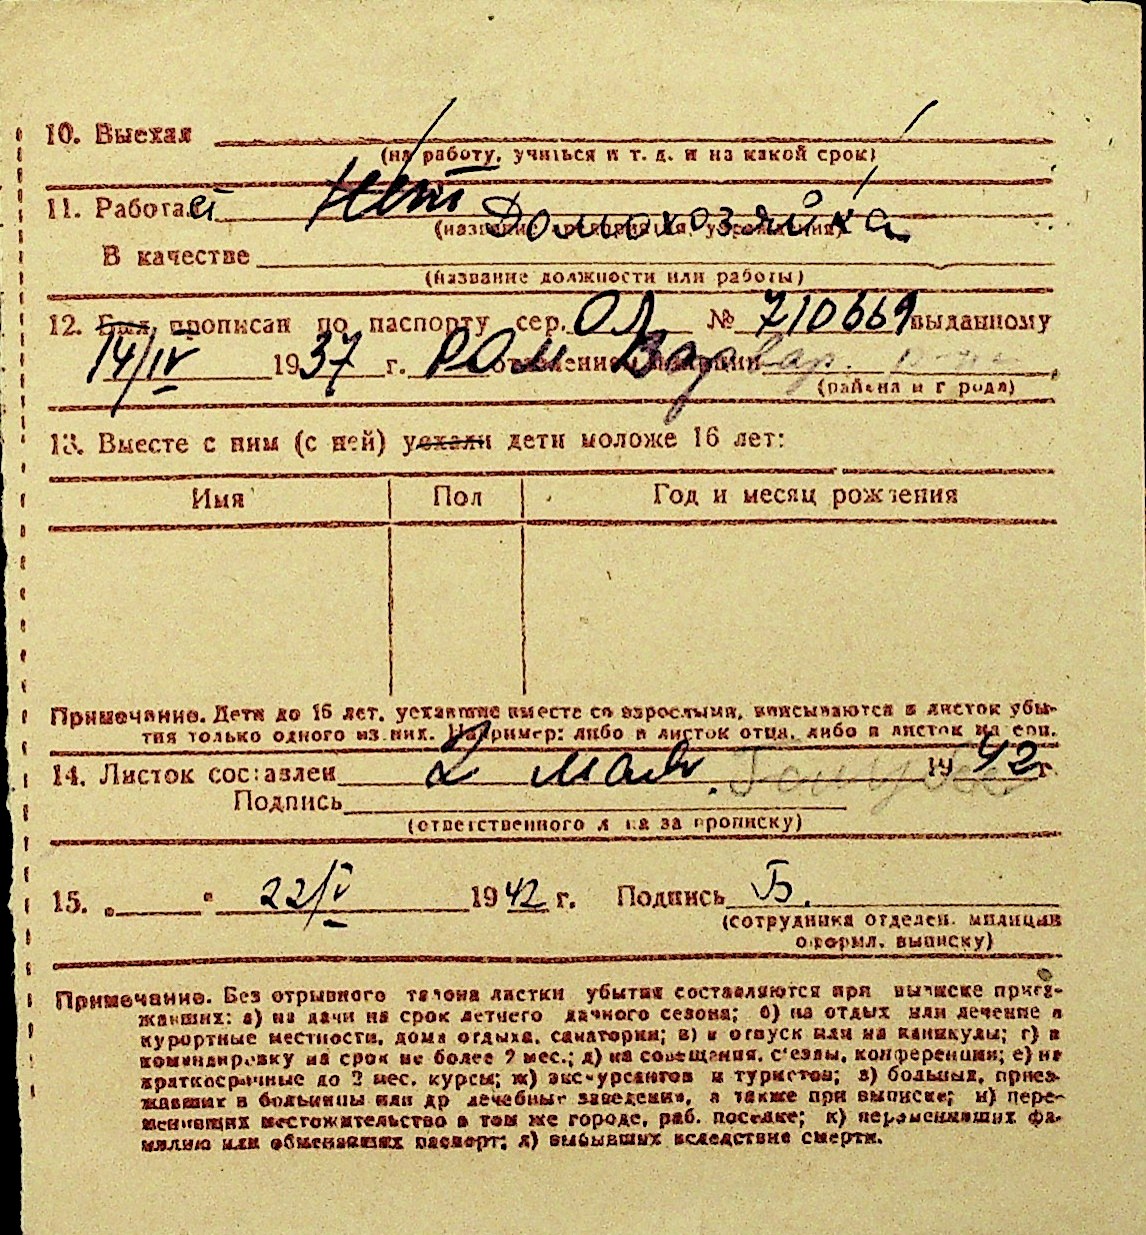 10. Выехал
(на работу, учиться и т. д. и на какой срок)
11. Работает Нет Домохозяйка
(название предприятия, учреждения)
В качестве
(название должности или работы)
12. Был прописан по паспорту сер. ОЛ № 710669 выданному
14/IV 1937 г. РОМ отделением милиции Варвар. р-на
(района и города)
13. Вместе с ним (с ней) уехали дети моложе 16 лет:
Имя Пол Год и месяц рождения
Примечание. Дети до 16 лет, уехавшие вместе со взрослыми, вписываются в листок убы-
тия только одного из них. Например: либо в листок отца, либо в листок матери.
14. Листок составлен 2 мая 1942 г
Подпись
(ответственного лица за прописку)
15. „ “ 22/V 1942 г. Подпись Б.
(сотрудника отделен. милиции
оформл. выписку)
Примечание. Без отрывного талона листки убытия составляются при выписке приез-
жавших: а) на дачи на срок летнего дачного сезона; б) на отдых или лечение в
курортные местности, дома отдыха, санатории; в) в отпуск или на каникулы; г) в
командировку на срок не более 2 мес.; д) на совещания, с'езды, конференции; е) на
краткосрочные до 2 мес. курсы; ж) экскурсантов и туристов; з) больных, приез-
жавших в больницы или др лечебные заведения, а также при выписке; и) пере-
менивших местожительство в том же городе, раб. поселке; к) переменивших фа-
милию или обменявших паспорт; л) выбывших вследствие смерти.